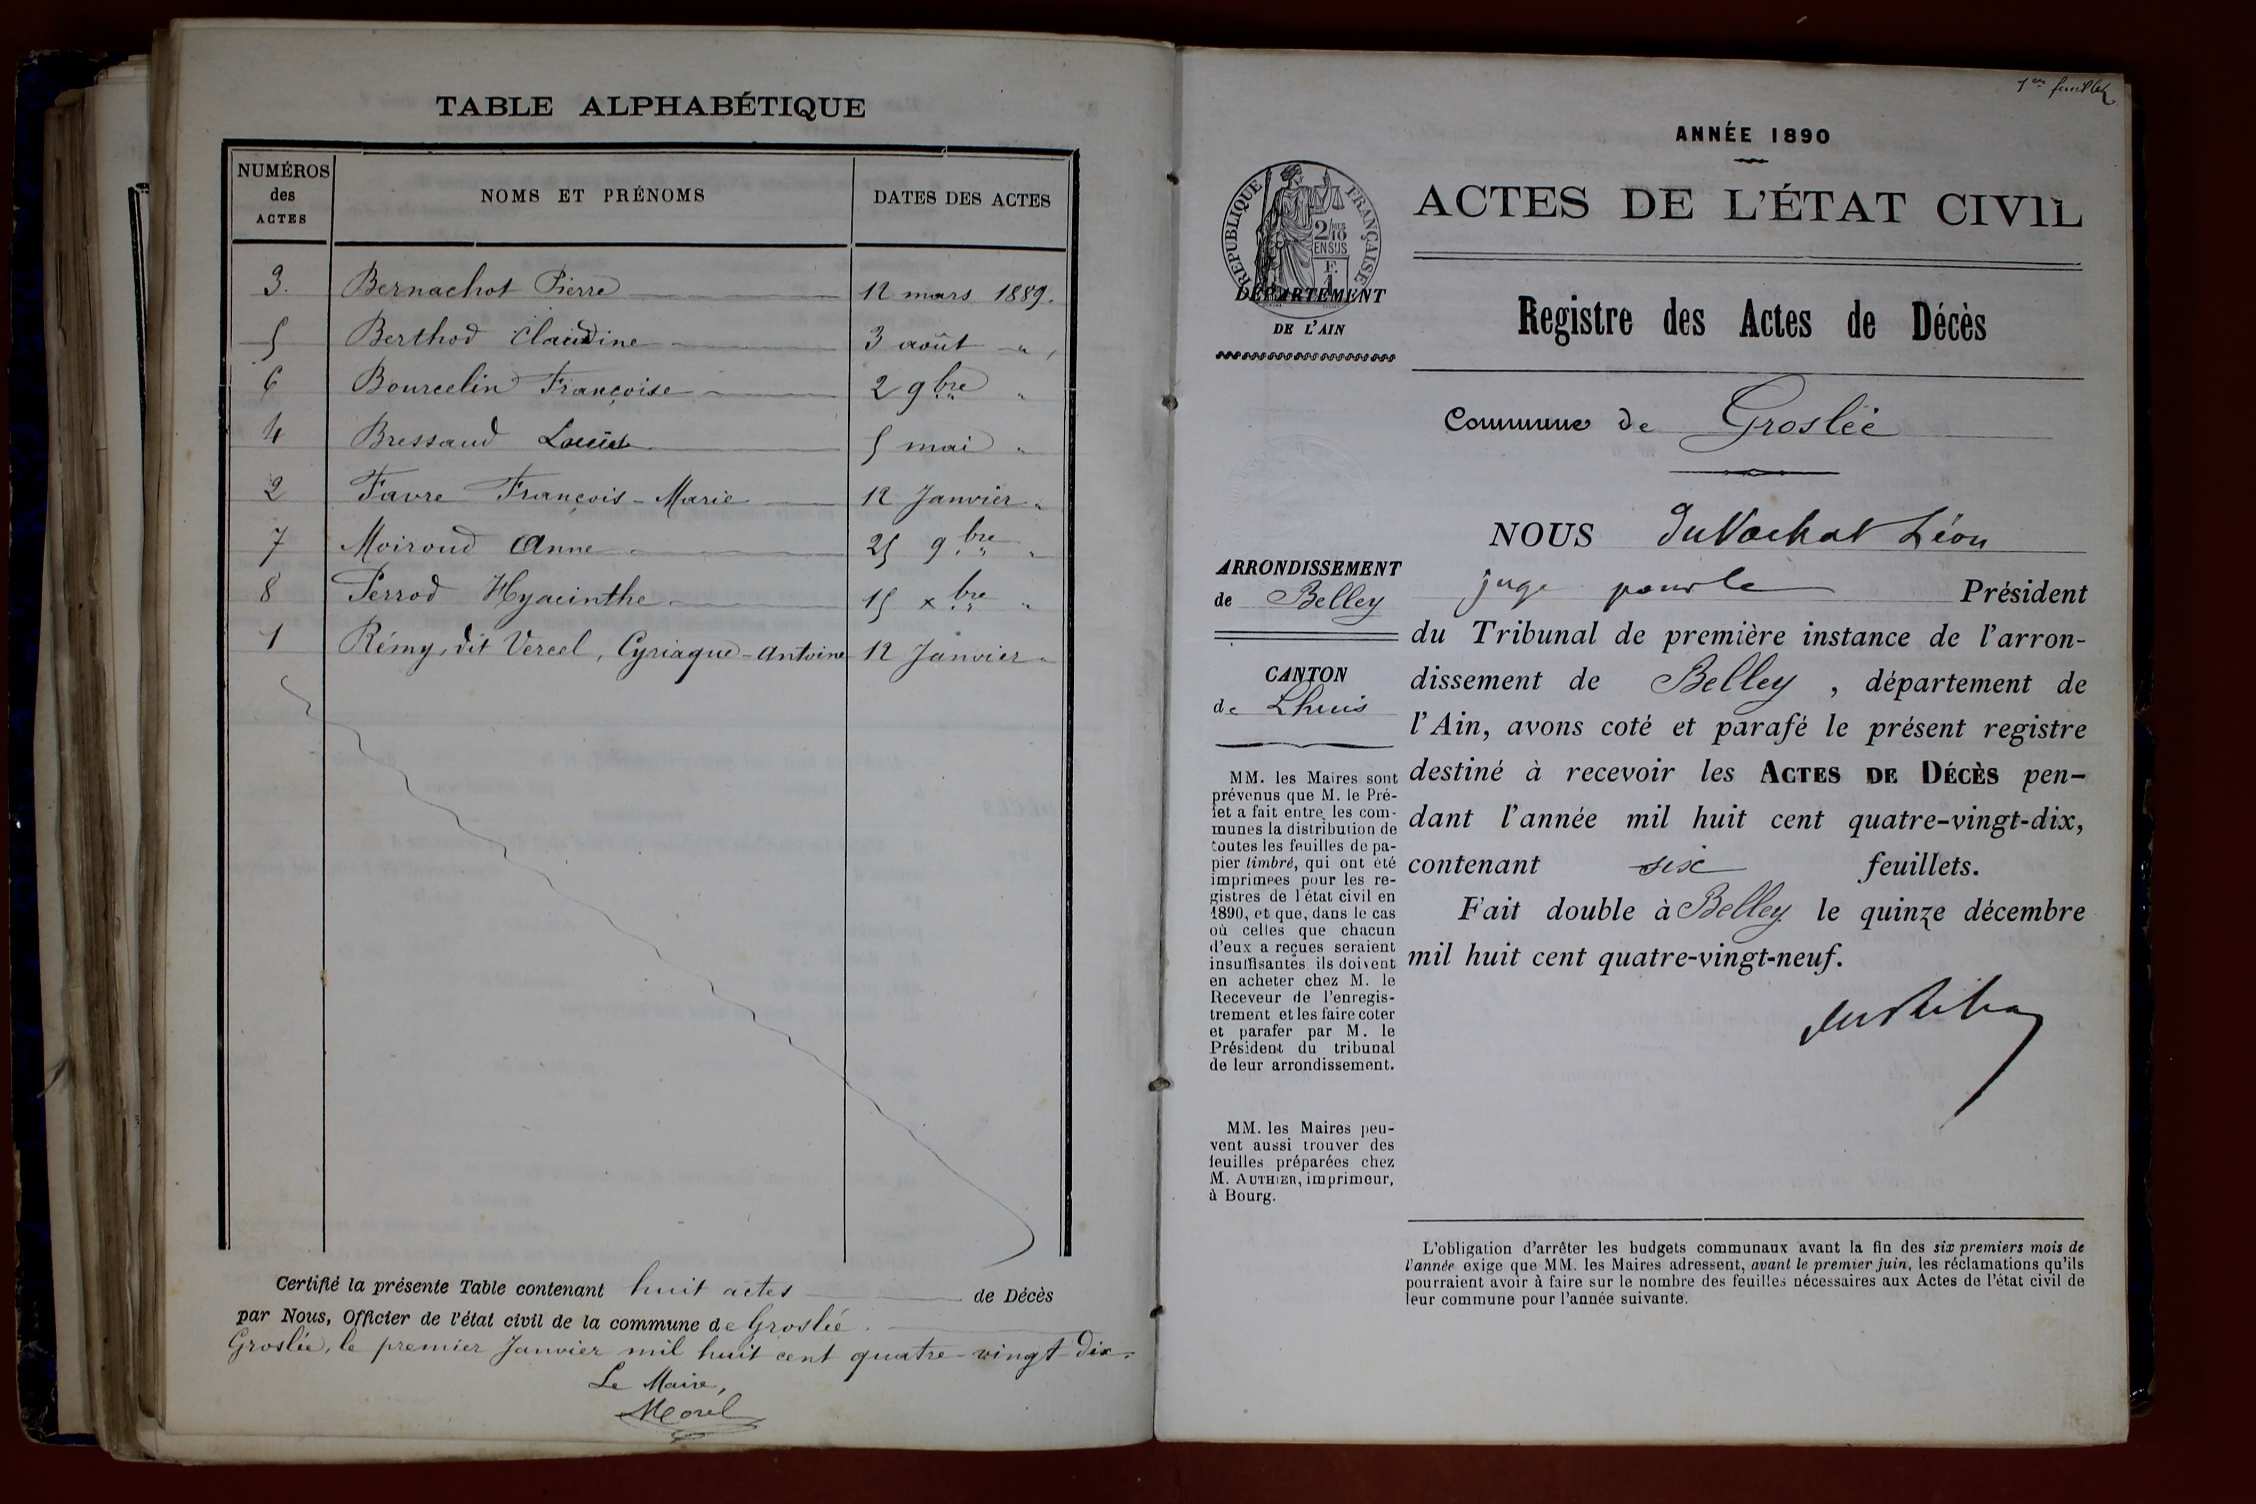 TABLE ALPHABÉTIQUE
NUMÉROS des ACTES
NOMS ET PRÉNOMS
DATES DES ACTES
3. Bernachot Pierre 12 mars 1889.
5 Berthod Claudine 3 août "
6 Bourcelin Françoise 2 9bre "
4 Bressaud Louis 5 mai "
2 Favre François-Marie 12 Janvier "
7 Moiroud Anne 25 9bre "
8 Perrod Hyacinthe 15 xbre "
1 Rémy, dit Vercel, Cyriaque-Antoine 12 Janvier "
Certifié la présente Table contenant huit actes de Décès
par Nous, Officier de l'état civil de la commune de Groslée.
Groslée, le premier Janvier mil huit cent quatre-vingt-dix.
Le Maire,
Morel
1er feuillet
ANNÉE 1890
RÉPUBLIQUE FRANÇAISE
2/10 EN SUS
F. 1
ACTES DE L'ÉTAT CIVIL
DÉPARTEMENT
DE L'AIN
Registre des Actes de Décès
Commune de Groslée
ARRONDISSEMENT
de Belley
CANTON
de Lhuis
MM. les Maires sont
prévenus que M. le Pré-
fet a fait entre les com-
munes la distribution de
toutes les feuilles de pa-
pier timbré, qui ont été
imprimées pour les re-
gistres de l'état civil en
1890, et que, dans le cas
où celles que chacun
d'eux a reçues seraient
insuffisantes, ils doivent
en acheter chez M. le
Receveur de l'enregis-
trement et les faire coter
et parafer par M. le
Président du tribunal
de leur arrondissement.
MM. les Maires peu-
vent aussi trouver des
feuilles préparées chez
M. AUTHIER, imprimeur,
à Bourg.
NOUS DuVachat Léon
juge pour le Président
du Tribunal de première instance de l'arron-
dissement de Belley, département de
l'Ain, avons coté et parafé le présent registre
destiné à recevoir les ACTES DE DÉCÈS pen-
dant l'année mil huit cent quatre-vingt-dix,
contenant six feuillets.
Fait double à Belley le quinze décembre
mil huit cent quatre-vingt-neuf.
L'obligation d'arrêter les budgets communaux avant la fin des six premiers mois de
l'année exige que MM. les Maires adressent, avant le premier juin, les réclamations qu'ils
pourraient avoir à faire sur le nombre des feuilles nécessaires aux Actes de l'état civil de
leur commune pour l'année suivante.